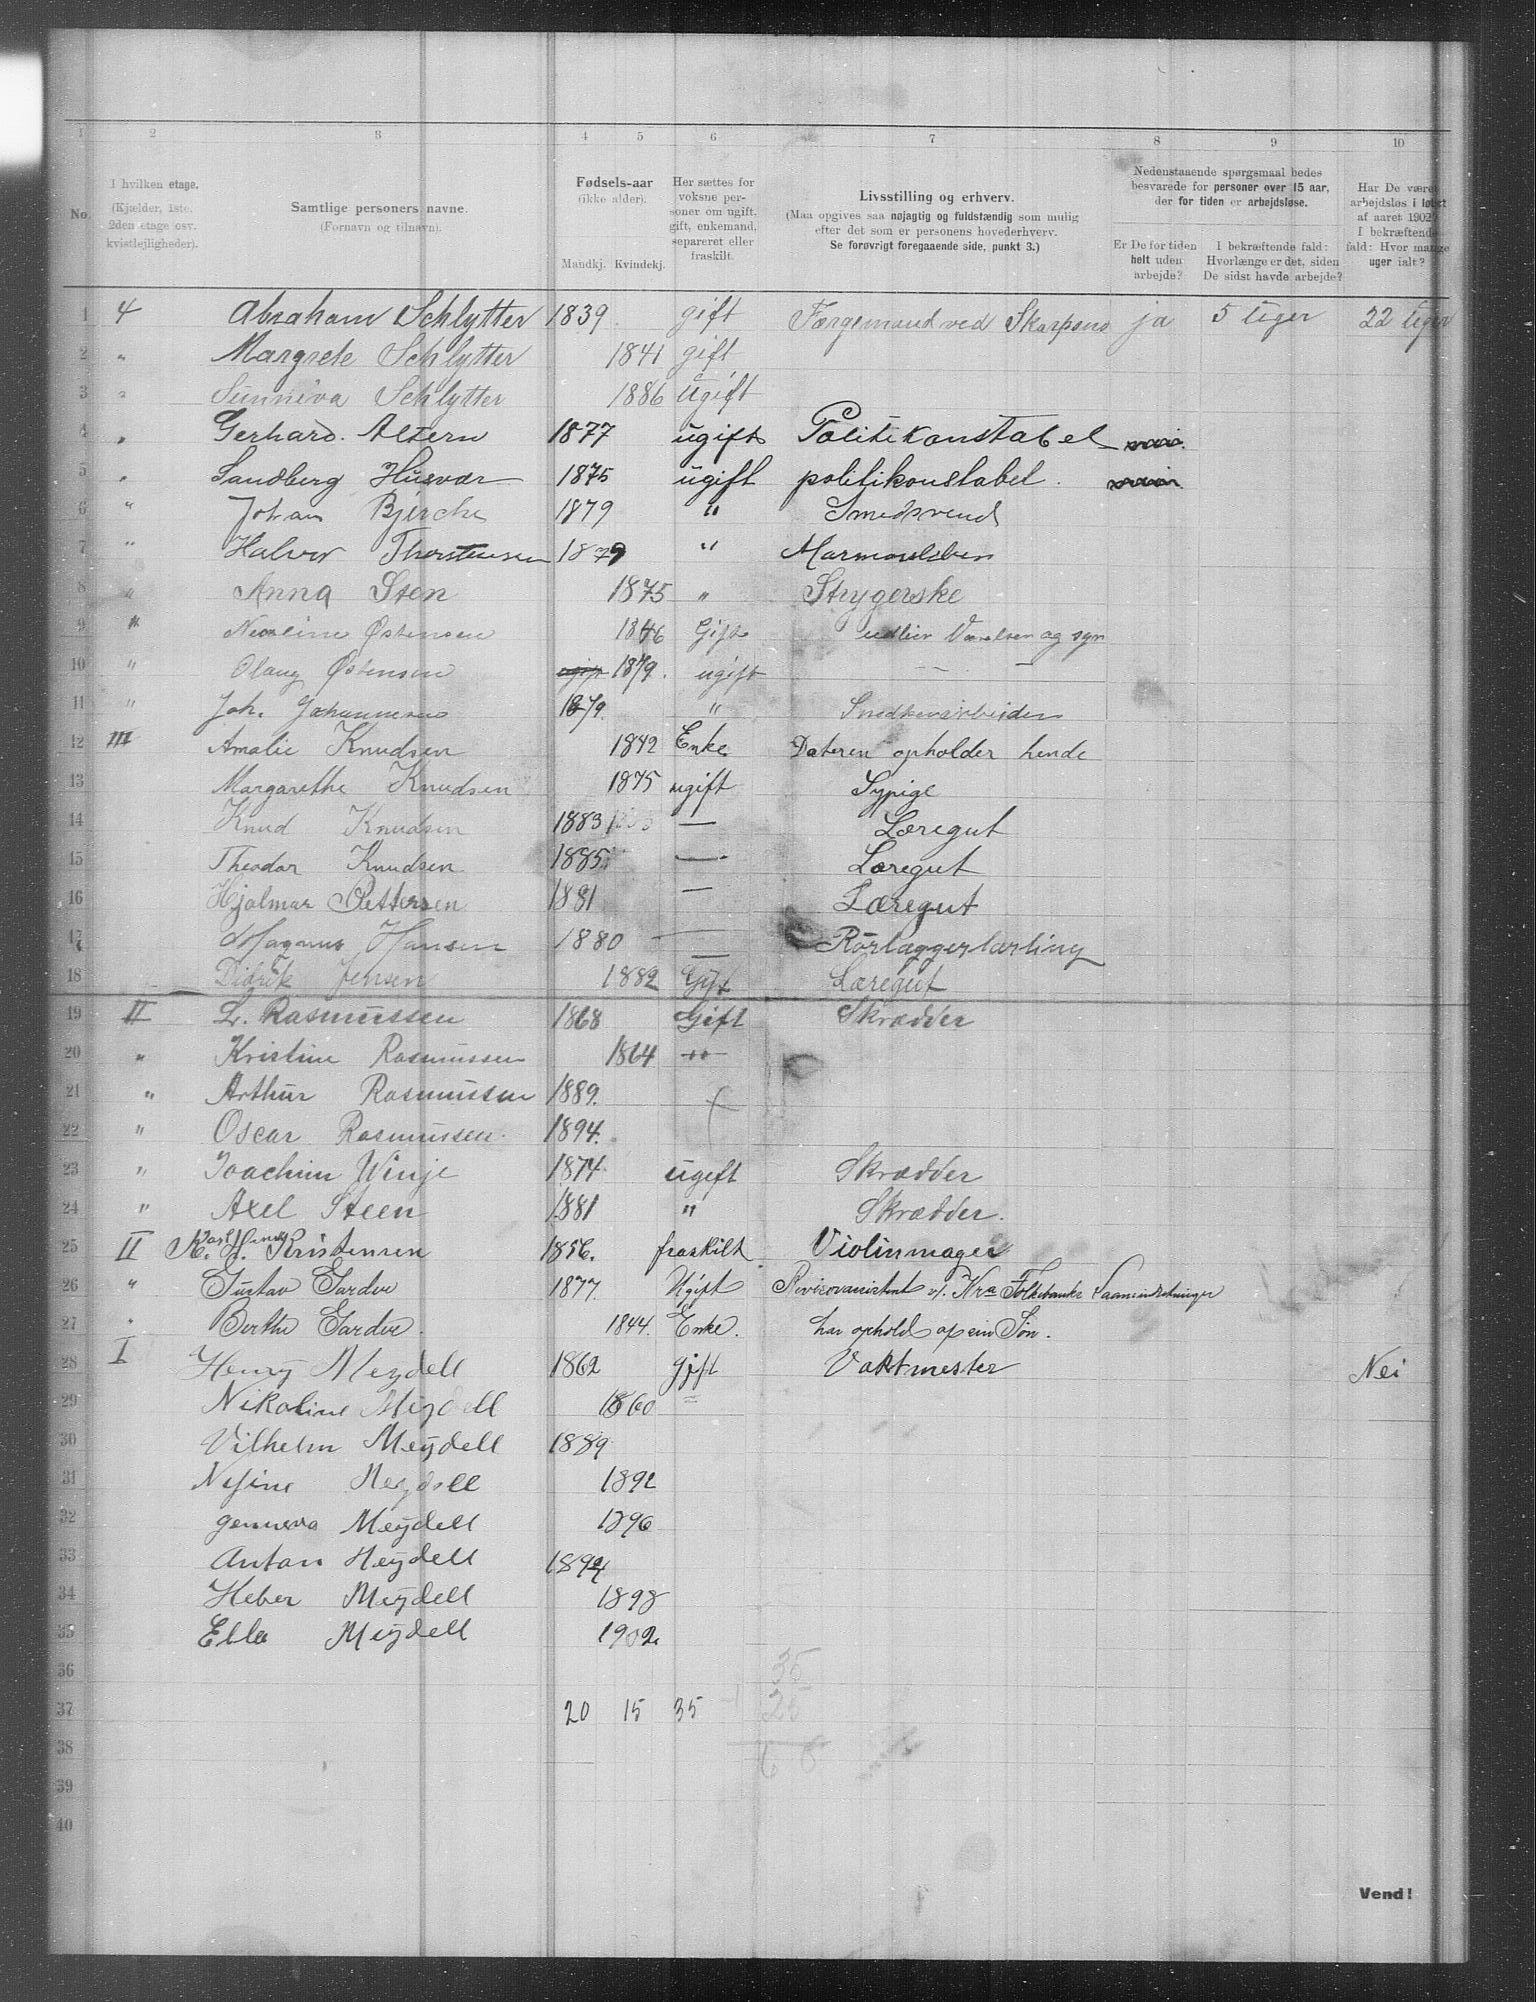 1 2 3 4 5 6 7 8 9 10
No. I hvilken etage. (Kjælder, 1ste, 2den etage osv. kvistlejligheder). Samtlige personers navne. (Fornavn og tilnavn). Fødsels-aar (ikke alder). Mandkj. Kvindekj. Her sættes for voksne personer om ugift, gift, enkemand, separeret eller fraskilt. Livsstilling og erhverv. (Maa opgives saa nøjagtig og fuldstændig som mulig efter det som er personens hovederhverv. Se forøvrigt foregaaende side, punkt 3.) Nedenstaaende spørgsmaal bedes besvarede for personer over 15 aar, der for tiden er arbejdsløse. Er De for tiden helt uden arbejde? I bekræftende fald: Hvorlænge er det, siden De sidst havde arbejde? Har De været arbejdsløs i løbet af aaret 1902? I bekræftende fald: Hvor mange uger ialt?
1 4 Abraham Schlytter 1839 gift Færgemand ved Skarpsno ja 5 Uger 22 Uger
2 " Margrete Schlytter 1841 gift
3 " Sunniva Schlytter 1886 Ugift
4 " Gerhard Altern 1877 ugift Politikonstabel
5 " Sandberg Husvær 1875 ugift politikonstabel.
6 " Johan Bjerche 1879 " Smedsvend
7 " Halvor Thorstensen 1879 "
8 " Anna Sten 1875 " Strygerske
9 " Østensen 1846 Gift udleier Værelser og syr
10 " Olaug Østensen 1879. ugift —
11 " Joh. Johannesen 1879. " Snedkerarbeider
12 III Amalie Knudsen 1842 Enke Dateren opholder hende
13 Margarethe Knudsen 1875 ugift Sypige
14 Knud Knudsen 1883 — Læregut
15 Theodor Knudsen 1885. — Læregut
16 Hjalmar Pettersen 1881 — Læregut
17 Magnus Hansen 1880 — Rørlæggerlærling
18 Didrik Jensen 1882 Gift Læregut
19 II L. Rasmussen 1868 Gift Skrædder
20 " Kristine Rasmussen 1864 "
21 " Arthur Rasmussen 1889.
22 " Oscar Rasmussen. 1894.
23 " Joachim Winje 1874. ugift Skrædder
24 " Axel Steen 1881 " Skrædder.
25 II K. H. Kristensen 1856. fraskilt Violinmager
26 " Gustav Sardee 1877 Ugift Revisorassistent v/. Kra Folkebanks
27 " Berthe Sardee. 1844. Enke. har ophold af sin Søn.
28 I Henry Meydell 1862 gift Vaktmester Nei
29 Nikoline Meydell 1860 =
30 Vilhelm Meydell 1889
31 Meydell 1892
32 Meydell 1896
33 Anton Meydell 1894
34 Heber Meydell 1898
35 Ella Meydell 1902
36 35
37 20 15 35 25
38 60
39
40
Vend!